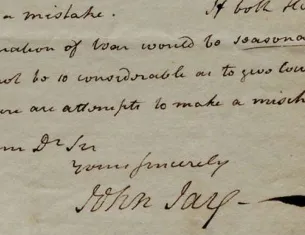 a mistake. If both
nation of War would be seasona
not be so considerable as to give
are attempts to make a misch
Dr Sir
yours sincerely
John Jay